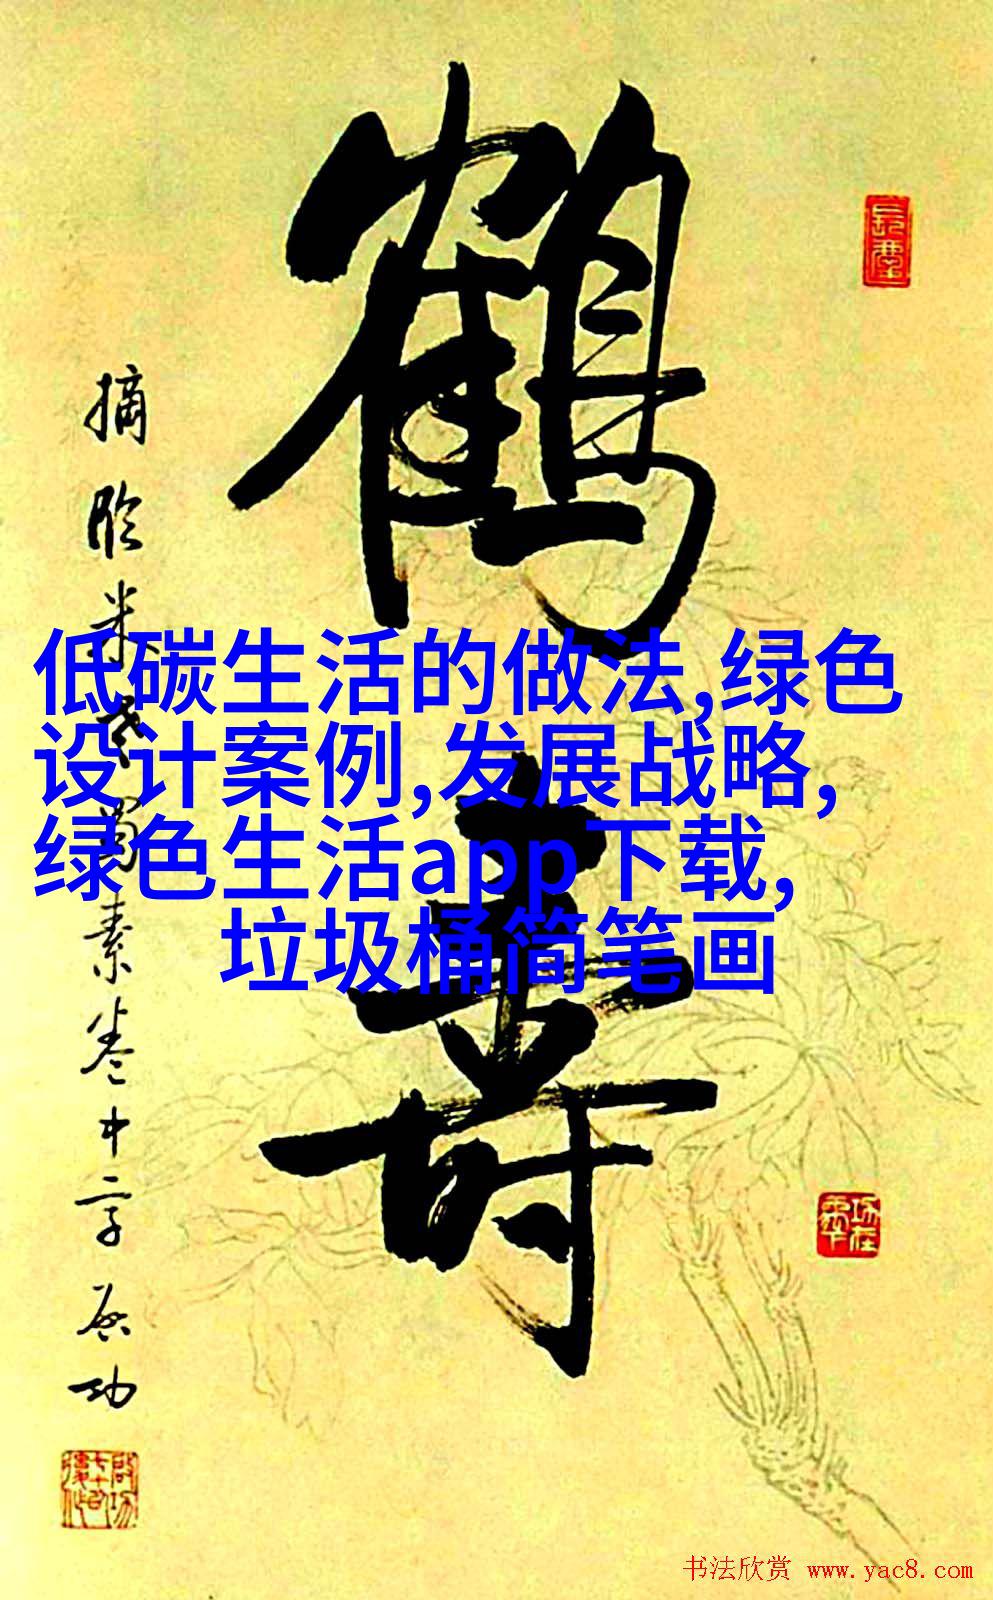 鶴壽
摘临米老蜀素卷中字 启功
低碳生活的做法,绿色
设计案例,发展战略,
绿色生活app下载,
垃圾桶简笔画
书法欣赏 www.yac8.com